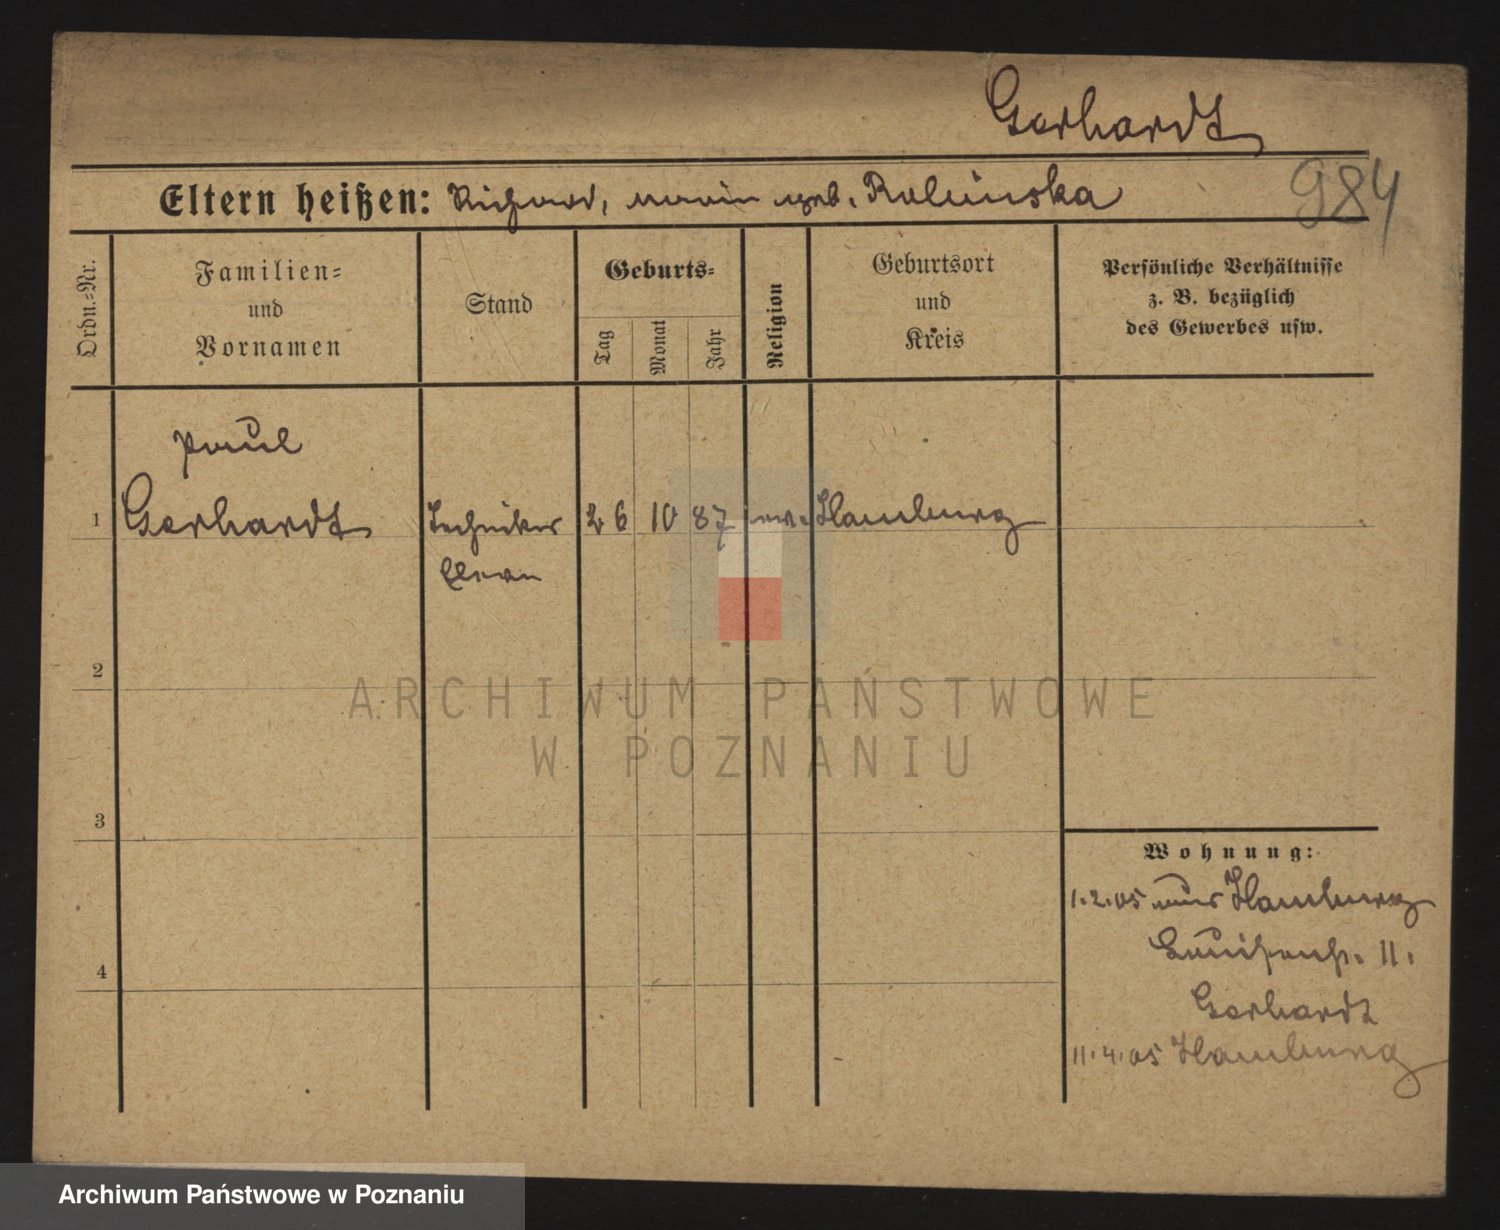 Gerhardt
984
Eltern heißen: Richard, Marie geb. Rolinska
Ordn.-Nr.
Familien-
und
Vornamen
Stand
Geburts-
Tag
Monat
Jahr
Religion
Geburtsort
und
Kreis
Persönliche Verhältnisse
z. B. bezüglich
des Gewerbes usw.
Paul
1 Gerhardt Techniker 26 10 87 ev. Hamburg
Eleve
2
3
4
Wohnung:
1.2.05 aus Hamburg
Louisenstr. 11.
Gerhardt
11.4.05 Hamburg
ARCHIWUM PAŃSTWOWE
W POZNANIU
Archiwum Państwowe w Poznaniu